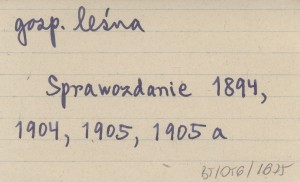 gosp. leśna
Sprawozdanie 1894,
1904, 1905, 1905 a